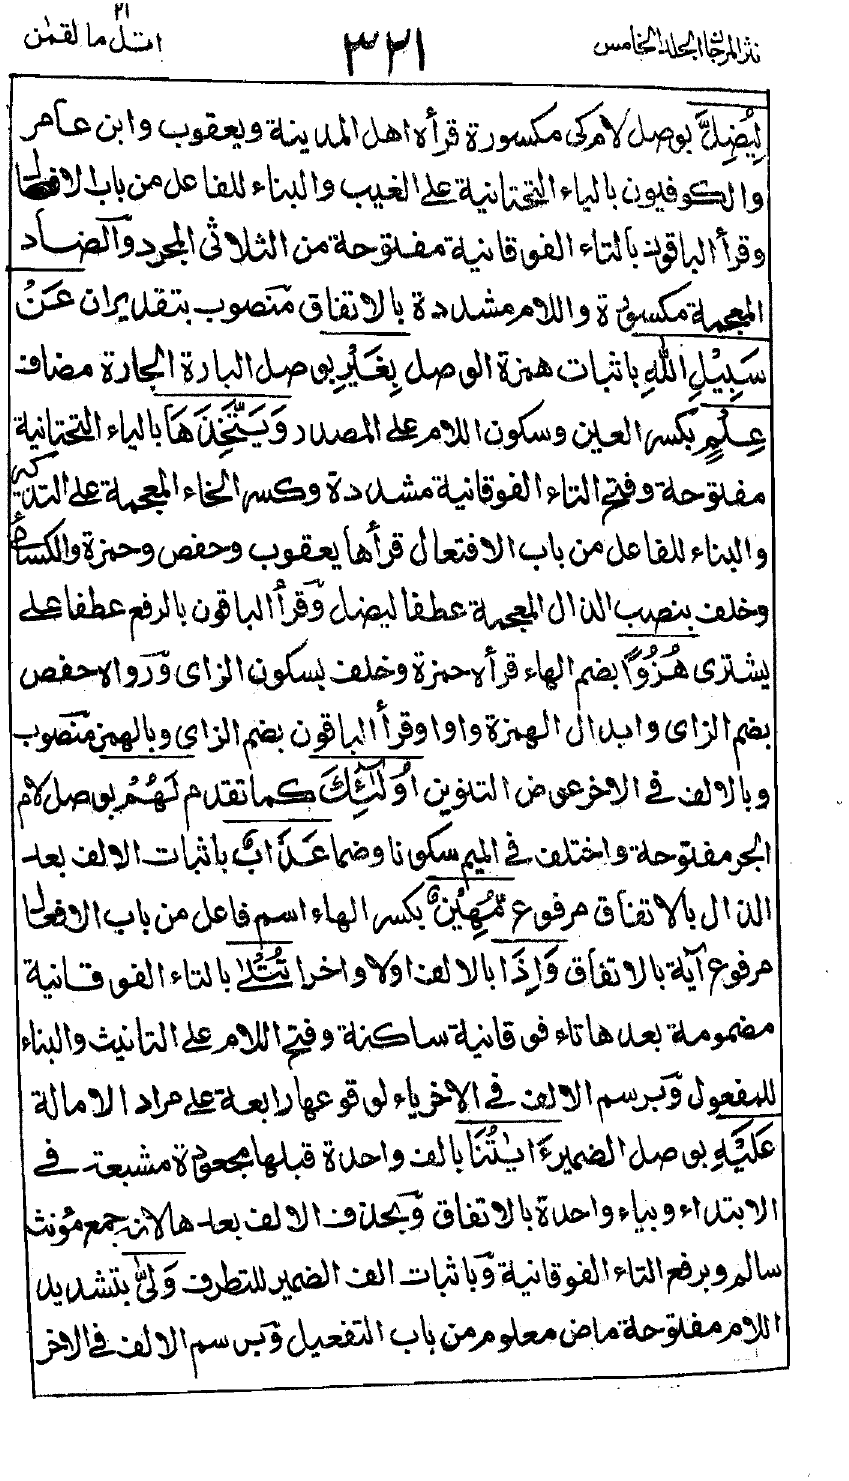 نثر المرجان الجلد الخامس
٣٢١
اتل ما ٢١ لقمٰن
لِيُضِلَّ بوصل لام كى مكسورة قرأه اهل المدينة ويعقوب وابن عامر
والكوفيون بالياء التحتانية على الغيب والبناء للفاعل من باب الافعال
وقرأ الباقون بالتاء الفوقانية مفتوحة من الثلاثى المجرد وَالضاد
المعجمة مكسورة واللام مشددة بالاتفاق منصوب بتقدير ان عَنْ
سَبِيْلِ اللّٰهِ باثبات همزة الوصل بِغَيْرِ بوصل البارة الجارة مضاف
عِلْمٍ بكسر العين وسكون اللام على المصدر وَيَتَّخِذَهَا بالياء التحتانية
مفتوحة وفتح التاء الفوقانية مشددة وكسر الخاء المعجمة على التذكير
والبناء للفاعل من باب الافتعال قرأها يعقوب وحفص وحمزة والكسائى
وخلف بنصب الذال المعجمة عطفا ليضل وَقرأ الباقون بالرفع عطفا على
يشترى هُزُوًا بضم الهاء قرأه حمزة وخلف بسكون الزاى وَرواه حفص
بضم الزاى وابدال الهمزة واوا وقرأ الباقون بضم الزاى وبالهمز منصوب
وبالالف فى الاخر عوض التنوين اُولٰٓئِكَ كما تقدم لَهُمْ بوصل لام
الجر مفتوحة واختلف فى الميم سكونا وضما عَذَابٌ باثبات الالف بعد
الذال بالاتفاق مرفوع مُّهِيْنٌ بكسر الهاء اسم فاعل من باب الافعال
مرفوع آية بالاتفاق وَاِذَا بالالف اولا واخرا تُتْلٰى بالتاء الفوقانية
مضمومة بعدها تاء فوقانية ساكنة وفتح اللام على التانيث والبناء
للمفعول وَبرسم الالف فى الاخر ياء لوقوعها رابعة على مراد الامالة
عَلَيْهِ بوصل الضمير ءَايٰتُنَا بالف واحدة قبلها مجعودة مشبعة فى
الابتداء وبياء واحدة بالاتفاق وَبحذف الالف بعدها لانه جمع مؤنث
سالم وبرفع التاء الفوقانية وَباثبات الف الضمير للتطرف وَلّٰى بتشديد
اللام مفتوحة ماض معلوم من باب التفعيل وَبرسم الالف فى الاخر